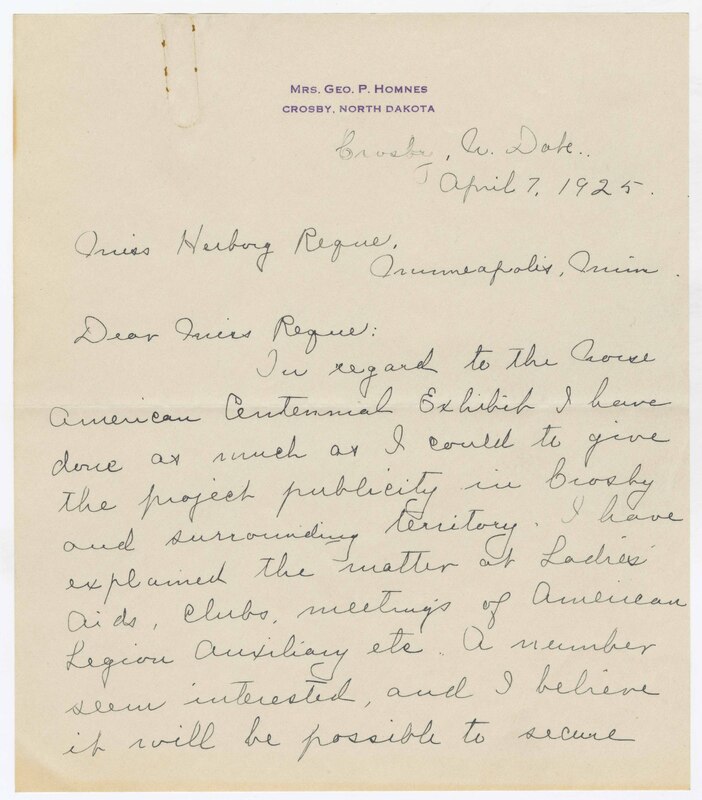 MRS. GEO. P. HOMNES
CROSBY, NORTH DAKOTA
Crosby, N. Dak..
April 7, 1925.
Miss Herborg Reque,
Minneapolis, Minn.
Dear Miss Reque:
In regard to the Norse
American Centennial Exhibit I have
done as much as I could to give
the project publicity in Crosby
and surrounding territory. I have
explained the matter at Ladies'
Aids, clubs, meetings of American
Legion Auxiliary etc. A number
seem interested, and I believe
it will be possible to secure